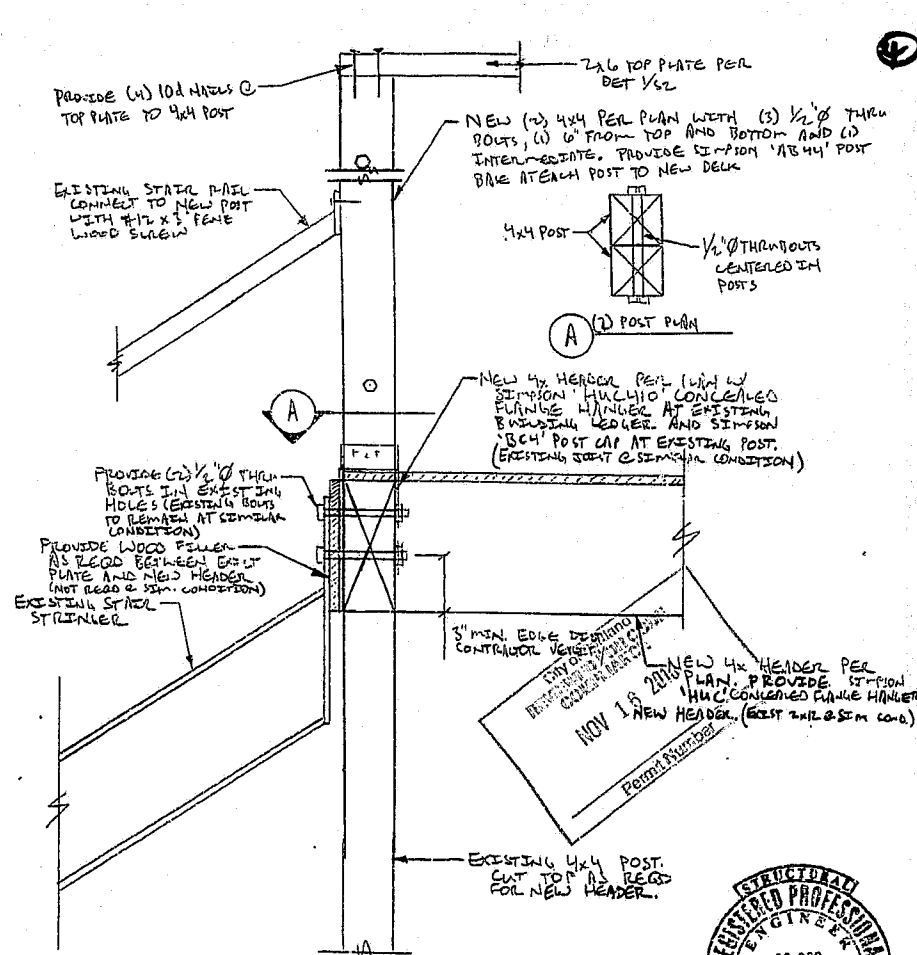 4
PROVIDE (4) 10d NAILS @
TOP PLATE TO 4x4 POST
2x6 TOP PLATE PER
DET 1/S2
NEW (2) 4x4 PER PLAN WITH (3) 1/2"Ø THRU
BOLTS, (1) 6" FROM TOP AND BOTTOM AND (1)
INTERMEDIATE. PROVIDE SIMPSON 'AB44' POST
BASE AT EACH POST TO NEW DECK
EXISTING STAIR RAIL
CONNECT TO NEW POST
WITH #12 x 3"
WOOD SCREW
4x4 POST
1/2"Ø THRUBOLTS
CENTERED IN
POSTS
A
(2) POST PLAN
A
NEW 4x HEADER PER PLAN W/
SIMPSON 'HUC410' CONCEALED
FLANGE HANGER AT EXISTING
BUILDING LEDGER. AND SIMPSON
'BC4' POST CAP AT EXISTING POST.
(EXISTING JOIST @ SIMILAR CONDITION)
PROVIDE (2) 1/2"Ø THRU
BOLTS IN EXISTING
HOLES (EXISTING BOLTS
TO REMAIN AT SIMILAR
CONDITION)
PROVIDE WOOD FILLER
AS REQD BETWEEN EXIST
PLATE AND NEW HEADER
(NOT REQD @ SIM. CONDITION)
EXISTING STAIR
STRINGER
3" MIN. EDGE DIST
CONTRACTOR VERIFY
City of
NOV 16
Permit Number
NEW 4x HEADER PER
PLAN. PROVIDE SIMPSON
'HUC' CONCEALED FLANGE HANGER
NEW HEADER. (EXIST 2x12 @ SIM COND.)
EXISTING 4x4 POST.
CUT TOP AS REQD
FOR NEW HEADER.
STRUCTURAL
REGISTERED PROFESSIONAL
ENGINEER